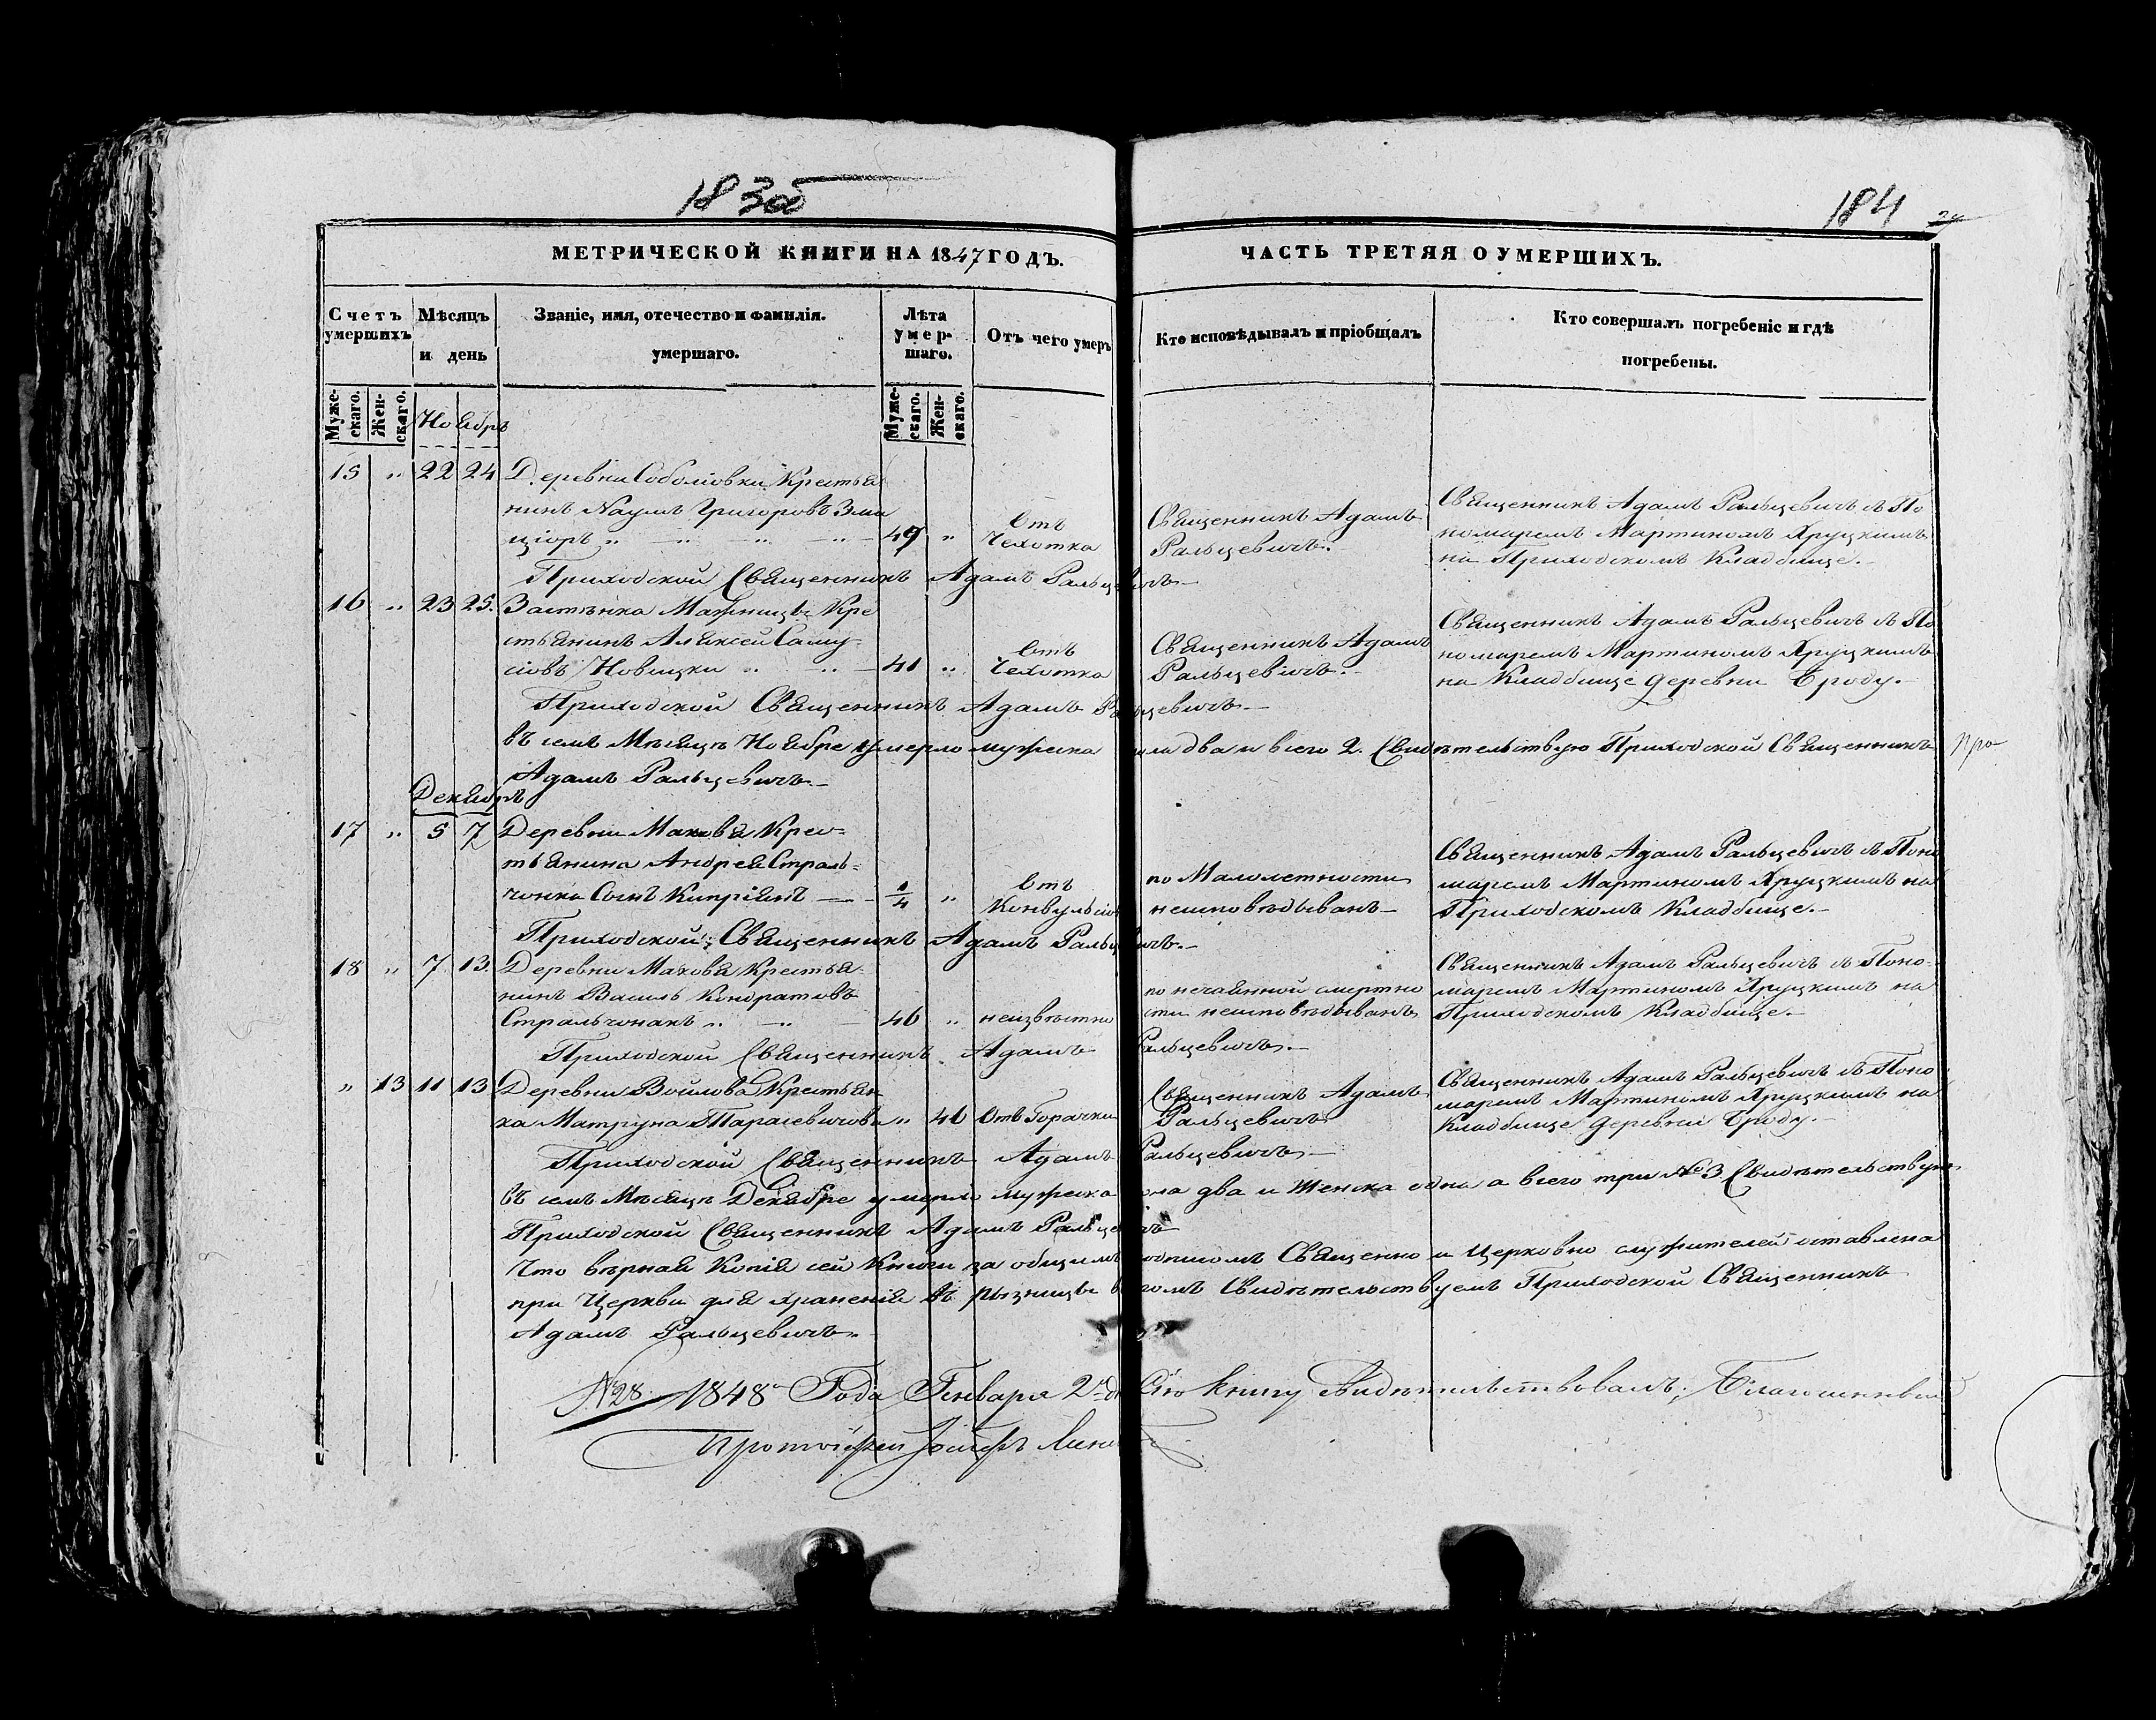 183об
184
МЕТРИЧЕСКОЙ КНИГИ НА 1847 ГОДЪ.
ЧАСТЬ ТРЕТЯЯ О УМЕРШИХЪ.
Счетъ умершихъ
Мѣсяцъ и день
Званіе, имя, отечество и фамилія.
умершаго.
Лѣта умершаго.
Отъ чего умеръ
Кто исповѣдывалъ и пріобщалъ
Кто совершалъ погребеніе и гдѣ
погребены.
Мужескаго.
Женскаго.
Ноябрь
Мужескаго.
Женскаго.
15 " 22 24 Деревни Соболіовки Крестья
нинъ Наумъ Григоровъ
49 " Отъ Чехотка
Священникъ Адамъ
Ральцевичъ.
Священникъ Адамъ Ральцевичъ съ По
номаремъ Мартиномъ Хруцкимъ
на Приходскомъ Кладбище.
Приходской Священникъ Адамъ Ральцевичъ
16 " 23 25. Застѣнка Кре
стьянинъ Алексей Саму
сіовъ Новицки " " 41 " Отъ Чехотка
Священникъ Адамъ
Ральцевичъ.
Священникъ Адамъ Ральцевичъ съ По
номаремъ Мартиномъ Хруцкимъ
на Кладбище деревни Броду.
Приходской Священникъ Адамъ Ральцевичъ
въ семъ Мѣсяцѣ Ноябре умерло мужеска пола два и всего 2. Свидѣтельствую Приходской Священникъ
Адамъ Ральцевичъ.
Декабрь
17 " 5 7 Деревни Махова Крес=
тьянина Андрея Страль=
чонка Сынъ Кипріянъ 1/4 " Отъ Конвульсіов
по Малолетности
неисповѣдыванъ
Священникъ Адамъ Ральцевичъ съ Поно
маремъ Мартиномъ Хруцкимъ на
Приходскомъ Кладбище.
Приходской Священникъ Адамъ Ральцевичъ.
18 " 7 13. Деревни Махова Крестья
нинъ Василь Кондратовъ
Стральчонакъ " " 46 " неизвѣстно
по нечаянной смертно
сти неисповѣдыванъ
Священникъ Адамъ Ральцевичъ съ Поно
маремъ Мартиномъ Хруцкимъ на
Приходскомъ Кладбище.
Приходской Священникъ Адамъ Ральцевичъ.
" 13 11 13 Деревни Войлова Крестьян
ка Матруна Тарасевичова " 40 Отъ Горачки
Священникъ Адамъ
Ральцевичъ
Священникъ Адамъ Ральцевичъ съ Поно
маремъ Мартиномъ Хруцкимъ на
Кладбище деревни Броду.
Приходской Священникъ Адамъ Ральцевичъ
въ семъ Мѣсяцѣ Декабре умерло мужеска пола два и женска одна а всего три № 3 Свидѣтельствую
Приходской Священникъ Адамъ Ральцевичъ
Что вѣрная Копія сей Книги за общимъ подписомъ Священно и Церковно служителей оставлена
при Церкви для храненія въ рызницѣ въ томъ Свидѣтельствуемъ Приходской Священникъ
Адамъ Ральцевичъ
№ 28. 1848 Года Генваря 2 дня Сію книгу Свидѣтельствовалъ; Благочинный
Протоіерей Іосифъ